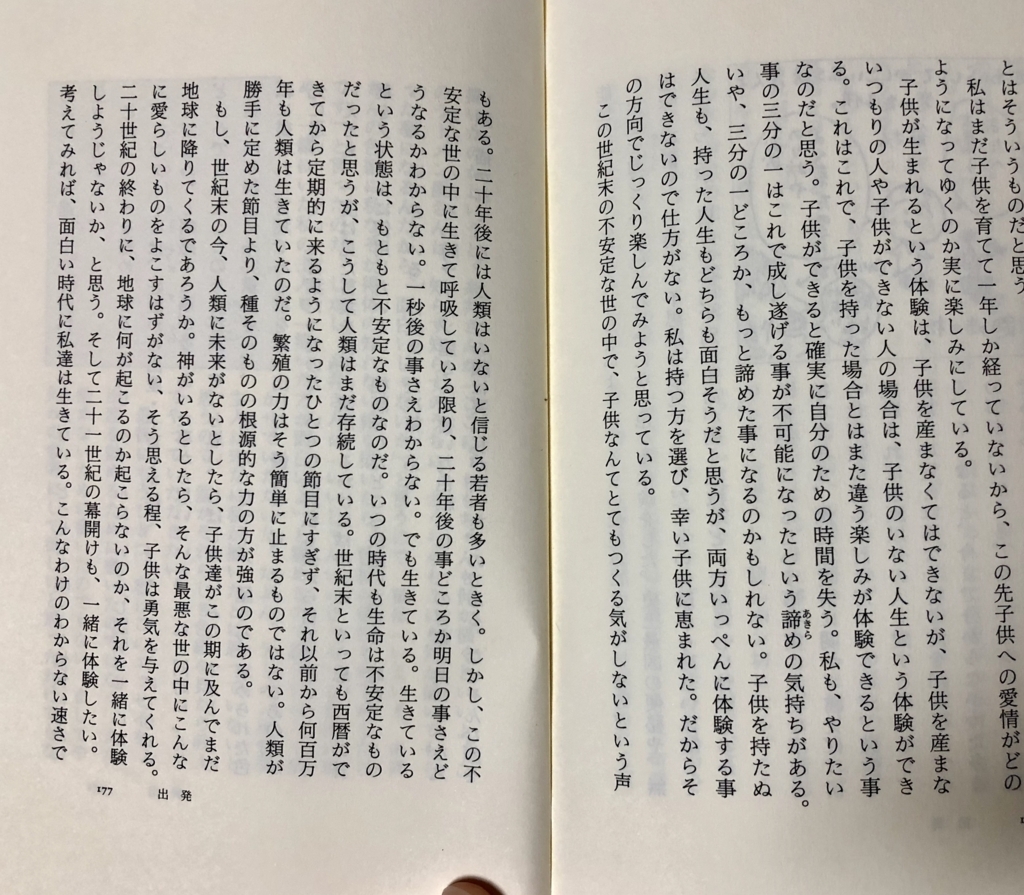 とはそういうものだと思う
私はまだ子供を育てて一年しか経っていないから、この先子供への愛情がどの
ようになってゆくのか実に楽しみにしている。
子供が生まれるという体験は、子供を産まなくてはできないが、子供を産まな
いつもりの人や子供ができない人の場合は、子供のいない人生という体験ができ
る。これはこれで、子供を持った場合とはまた違う楽しみが体験できるという事
なのだと思う。子供ができると確実に自分のための時間を失う。私も、やりたい
事の三分の一はこれで成し遂げる事が不可能になったという諦めの気持ちがある。
あきら
いや、三分の一どころか、もっと諦めた事になるのかもしれない。子供を持たぬ
人生も、持った人生もどちらも面白そうだと思うが、両方いっぺんに体験する事
はできないので仕方がない。私は持つ方を選び、幸い子供に恵まれた。だからそ
の方向でじっくり楽しんでみようと思っている。
この世紀末の不安定な世の中で、子供なんてとてもつくる気がしないという声
もある。二十年後には人類はいないと信じる若者も多いときく。しかし、この不
安定な世の中に生きて呼吸している限り、二十年後の事どころか明日の事さえど
うなるかわからない。一秒後の事さえわからない。でも生きている。生きている
という状態は、もともと不安定なものなのだ。いつの時代も生命は不安定なもの
だったと思うが、こうして人類はまだ存続している。世紀末といっても西暦がで
きてから定期的に来るようになったひとつの節目にすぎず、それ以前から何百万
年も人類は生きていたのだ。繁殖の力はそう簡単に止まるものではない。人類が
勝手に定めた節目より、種そのものの根源的な力の方が強いのである。
もし、世紀末の今、人類に未来がないとしたら、子供達がこの期に及んでまだ
地球に降りてくるであろうか。神がいるとしたら、そんな最悪な世の中にこんな
に愛らしいものをよこすはずがない、そう思える程、子供は勇気を与えてくれる。
二十世紀の終わりに、地球に何が起こるのか起こらないのか、それを一緒に体験
しようじゃないか、と思う。そして二十一世紀の幕開けも、一緒に体験したい。
考えてみれば、面白い時代に私達は生きている。こんなわけのわからない速さで
177 出発